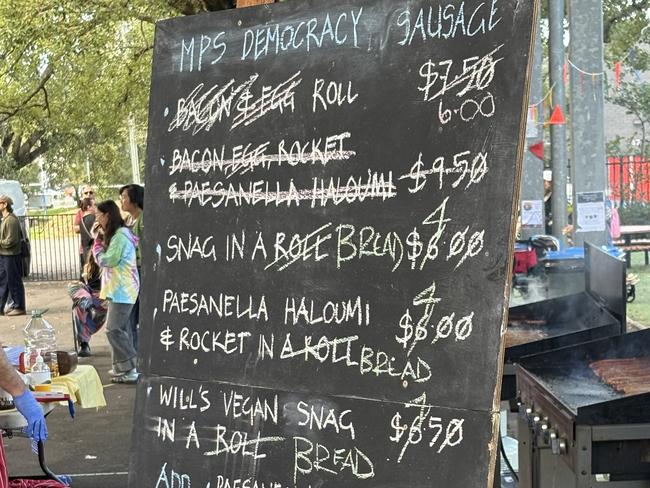 MPS DEMOCRACY SAUSAGE
BACON & EGG ROLL $7.50
6.00
BACON EGG ROCKET
& PAESANELLA HALOUMI $9.50
4
SNAG IN A ROLL BREAD $6.00
PAESANELLA HALOUMI 4
& ROCKET IN A ROLL BREAD $6.00
WILL'S VEGAN SNAG 4
IN A ROLL BREAD $6.50
ADD PAESANELLA